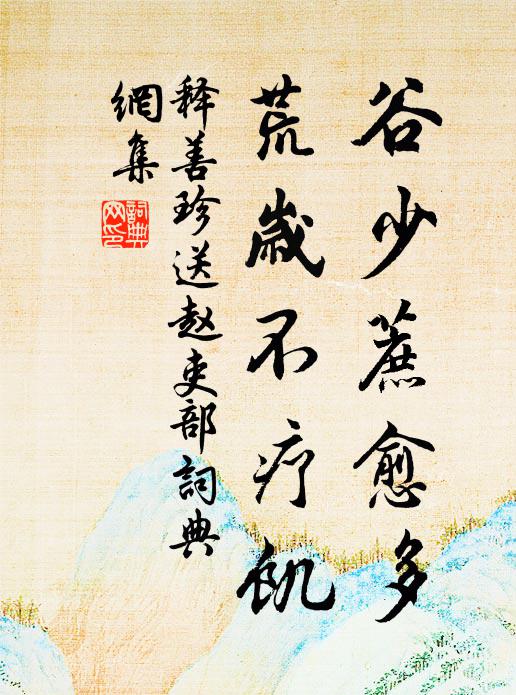 谷少蔗愈多
荒歲不疗飢
释善珍送赵吏部詞典
網集
詞典
网印